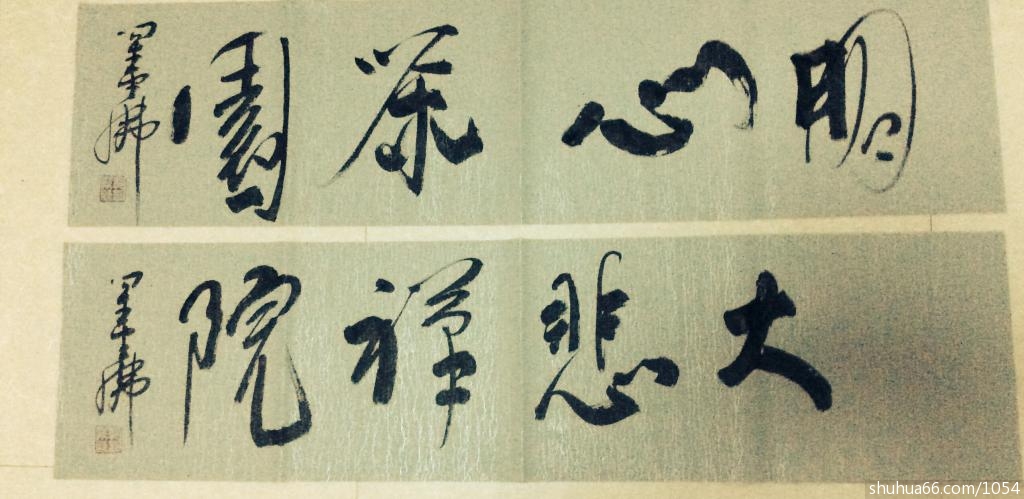 明心茶園
墨佛
大悲禅院
墨佛
shuhua66.com/1054